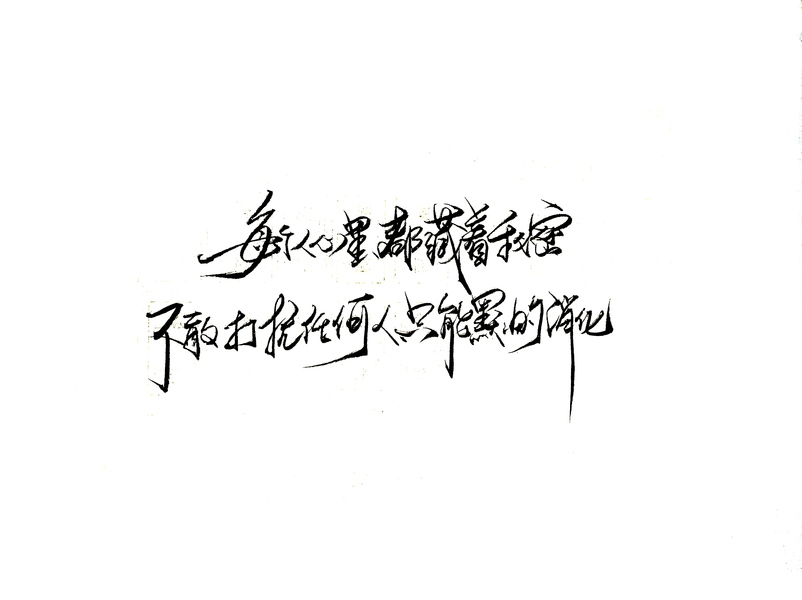 每个人心里都藏着秘密
不敢打扰任何人只能默的消化